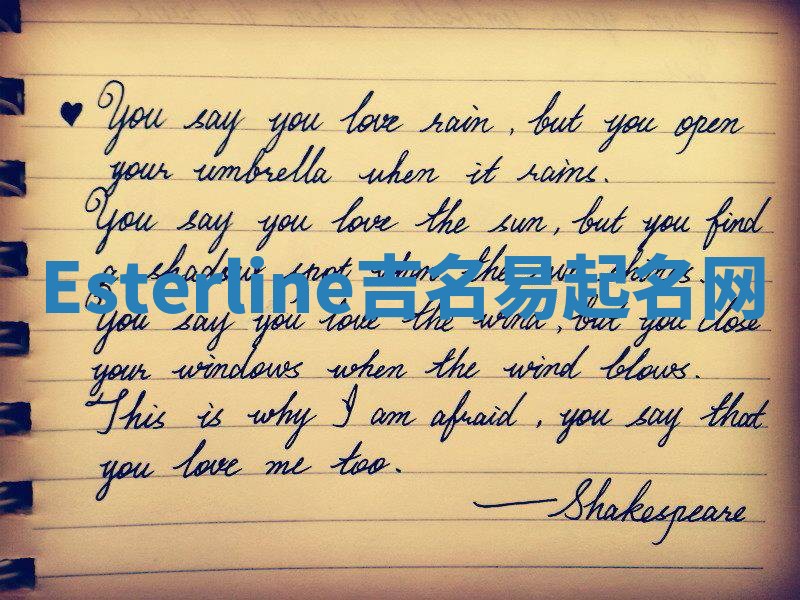 ♥ You say you love rain, but you open
your umbrella when it rains.
You say you love the sun, but you find
a shadow spot when the sun shines.
Esterline吉名易起名网
You say you love the wind, but you close
your windows when the wind blows.
This is why I am afraid, you say that
you love me too.
—Shakespeare